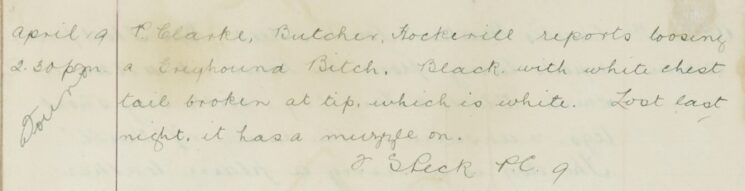 April 9 P. Clarke, Butcher, Hockerill reports loosing
2.30pm a Greyhound Bitch. Black with white chest
tail broken at tip, which is white. Lost last
night, it has a muzzle on.
Found
J Speck P.C. 9